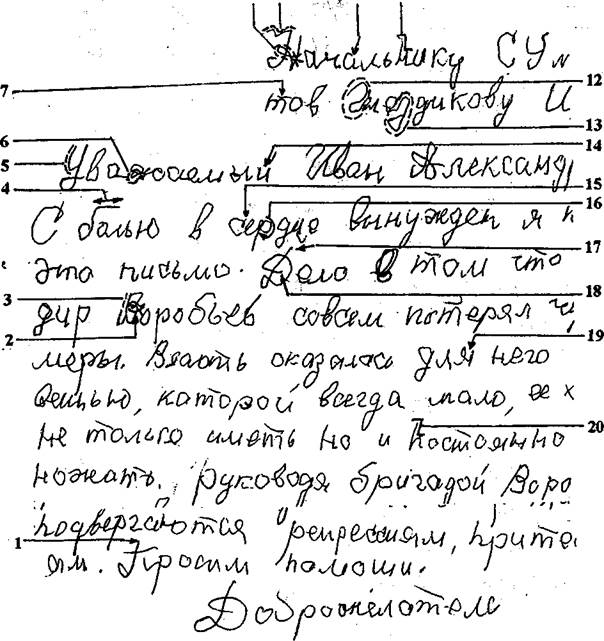 Начальнику СУ м
7 тов Эмездикову И 12
13
6 14
5 Уважаемый Иван Александ
4 15
16
С болью в сердце вынужден я п
17
это письмо. Дело в том что
18
3 дир Воробьев совсем потерял чу
2 19
меры. Власть оказалась для него
вещью, каторой всегда мало, ее х
20
не только иметь но и постоянно
ножать. руководя бригадой Воро
подвергаются репрессиям, прите
1
ям. Просим помощи.
Доброжелатель